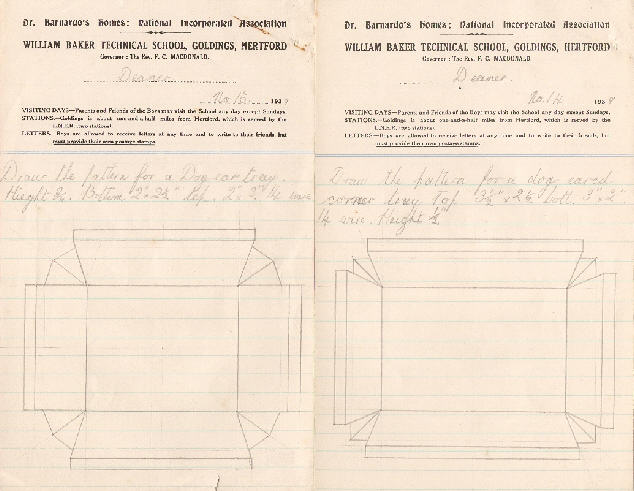 Dr. Barnardo's Homes: National Incorporated Association
WILLIAM BAKER TECHNICAL SCHOOL, GOLDINGS, HERTFORD
Governor: The Rev. F. C. MACDONALD.
Deaner.
No. 13. 193
VISITING DAYS—Parents and Friends of the Boys may visit the School any day except Sundays.
STATIONS.—Goldings is about one-and-a-half miles from Hertford, which is served by the
L.N.E.R. (two stations).
LETTERS. Boys are allowed to receive letters at any time and to write to their friends, but
must provide their own postage stamps.
Draw the pattern for a Dog ear tray.
Height Bottom 2" top wire
Dr. Barnardo's Homes: National Incorporated Association
WILLIAM BAKER TECHNICAL SCHOOL, GOLDINGS, HERTFORD
Governor: The Rev. F. C. MACDONALD.
Deaner.
No. 14 193
VISITING DAYS—Parents and Friends of the Boys may visit the School any day except Sundays.
STATIONS.—Goldings is about one-and-a-half miles from Hertford, which is served by the
L.N.E.R. (two stations).
LETTERS—Boys are allowed to receive letters at any time and to write to their friends, but
must provide their own postage stamps.
Draw the pattern for a dog eared
corner tray top bott. 3" x 2"
wire. Height ½"